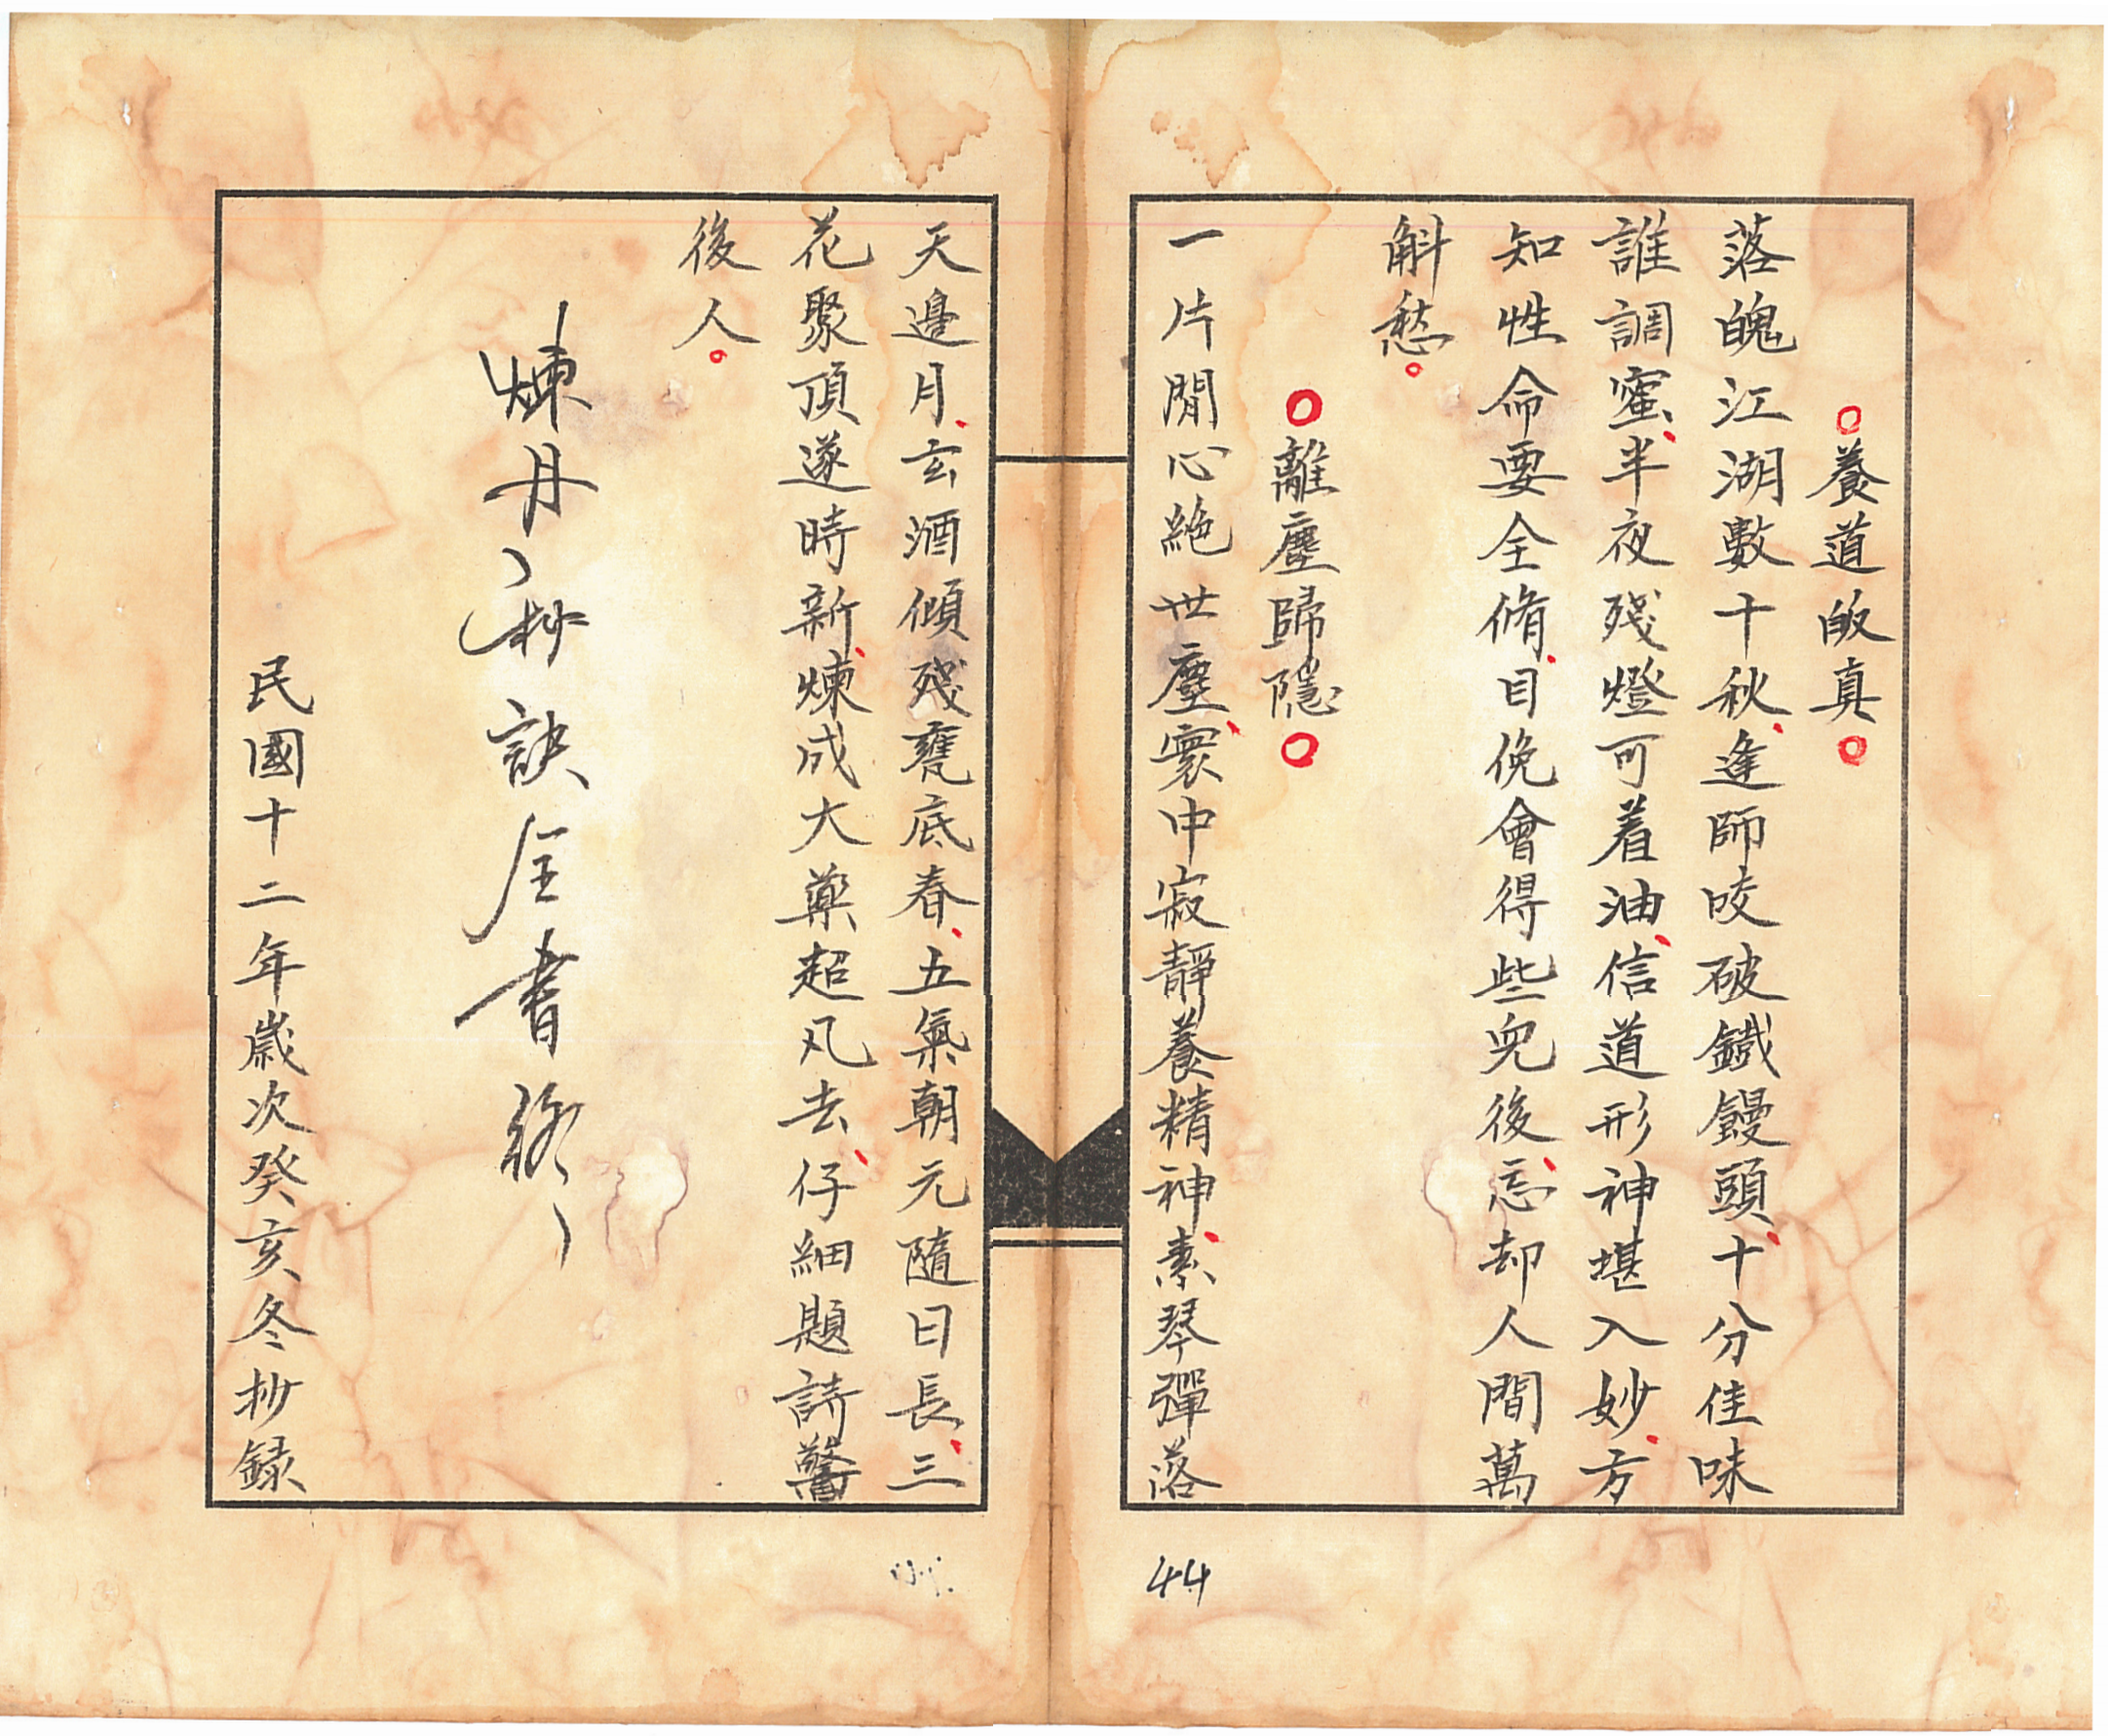 養道皈真
落魄江湖數十秋逢師咬破鐵饅頭十分佳味
誰調蜜半夜殘燈可着油信道形神堪入妙方
知性命要全脩目俛會得些兒後忘却人間萬
斛愁
離塵歸隱
一片閒心絶世塵寰中寂靜養精神素琴彈落
天邊月玄酒傾殘甕底春五氣朝元隨日長三
花聚頂遂時新煉成大藥超凡去仔細題詩警
後人
煉丹抄訣全書終
民國十二年歲次癸亥冬抄録
44